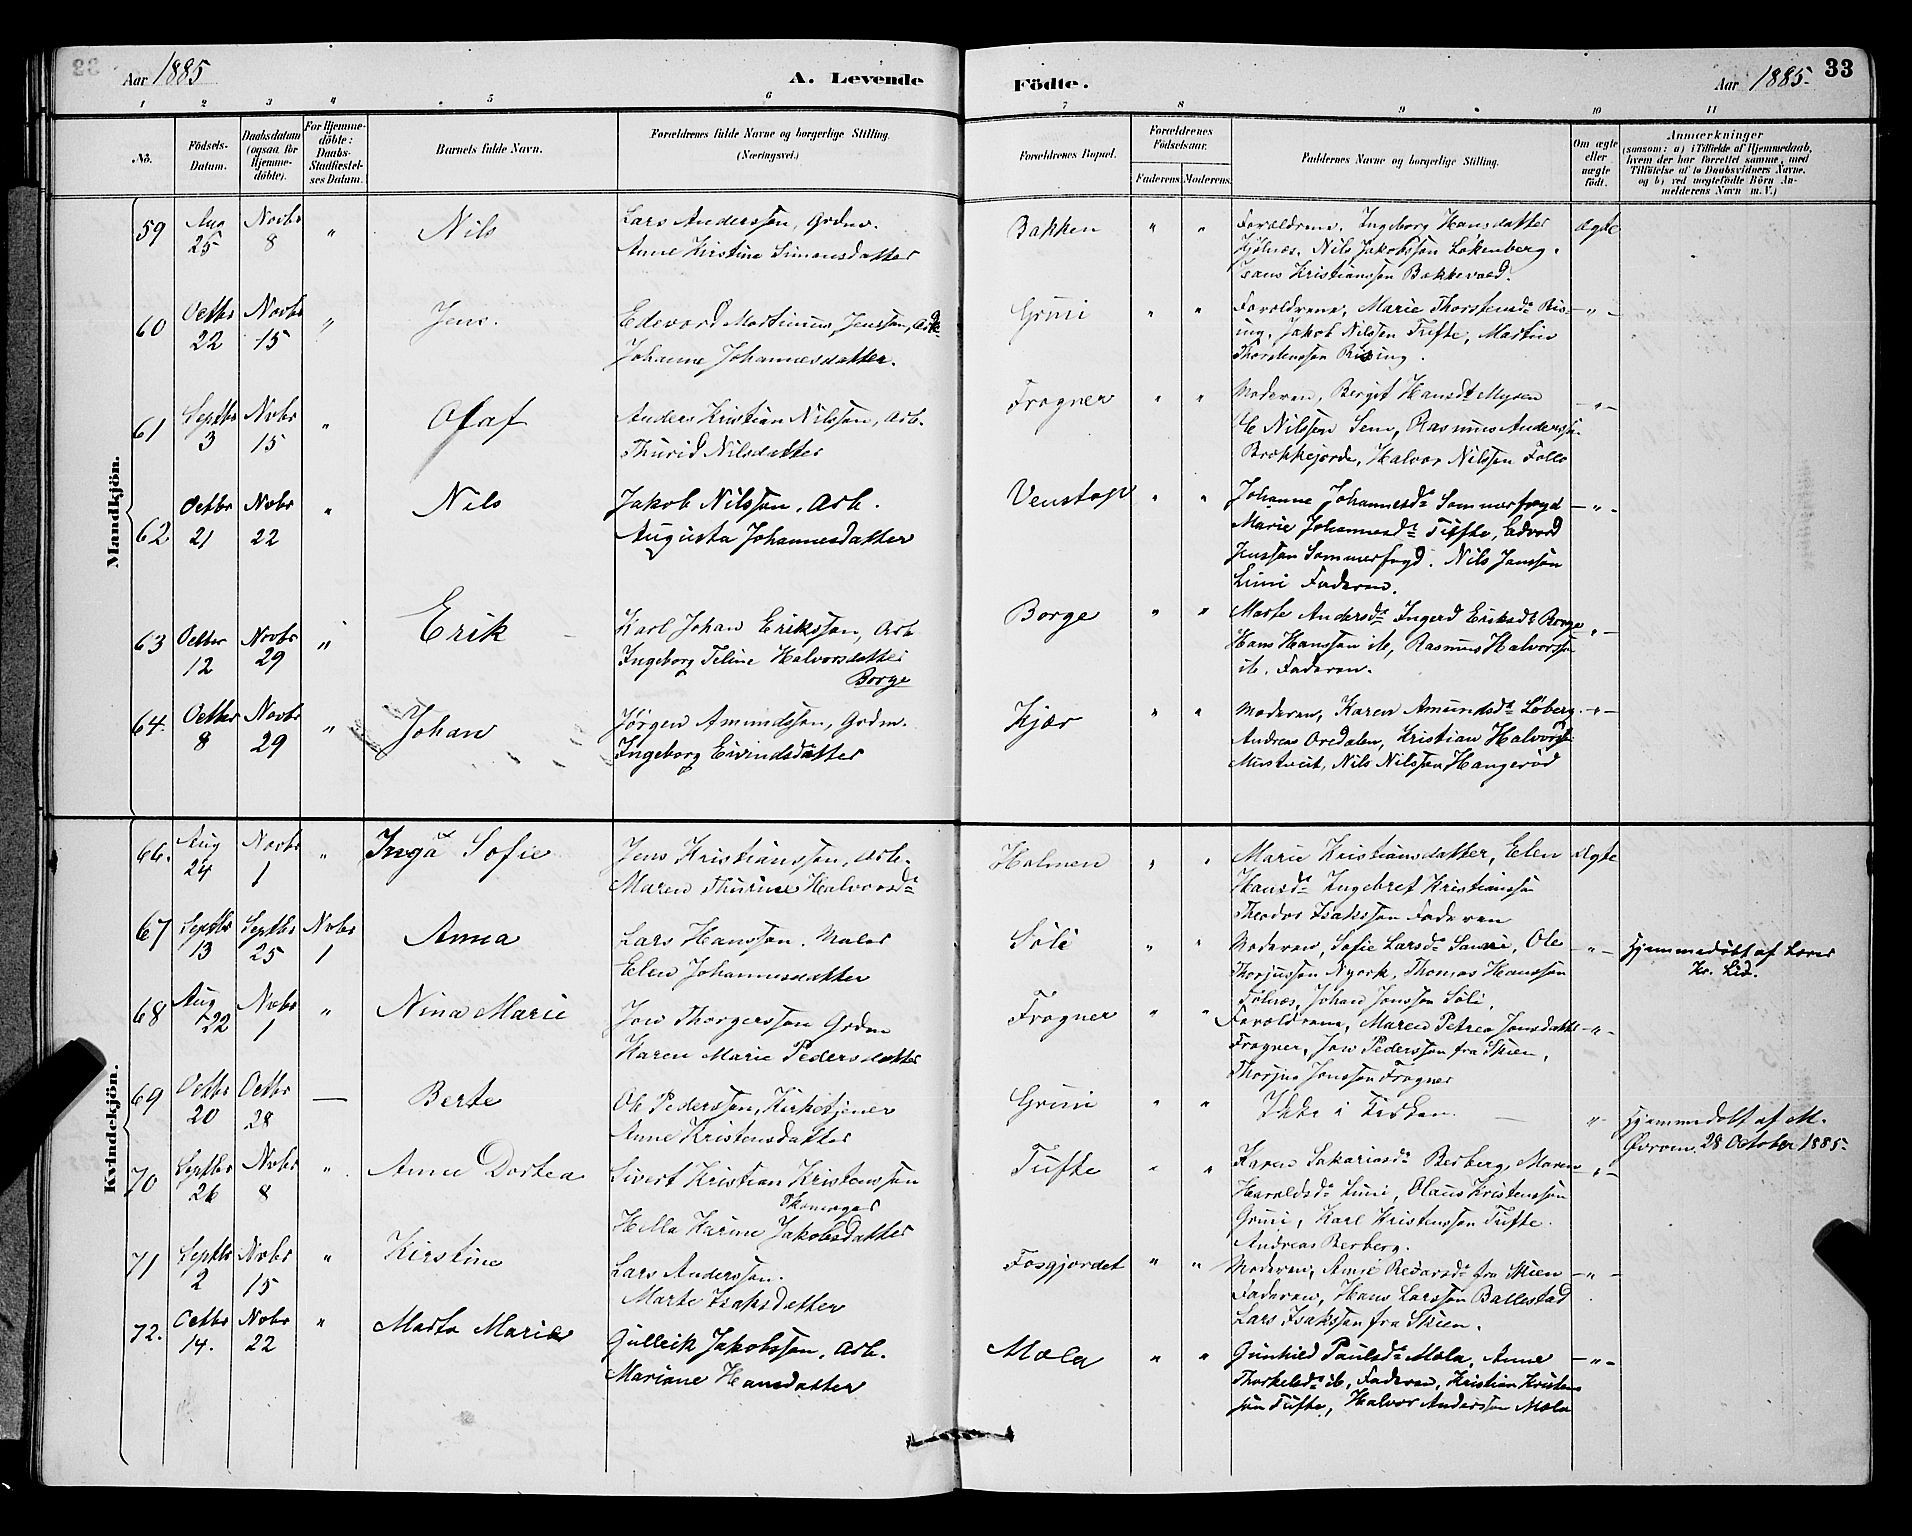 33
Aar 1885
A. Levende
Födte.
Aar 1885.
33
1 2 3 4 5 6 7 8 9 10 11
No.
Födsels-Datum.
Daabsdatum (ogsaa for Hjemme-döbte).
For Hjemme-döbte: Daabs-Stadfæstel-ses Datum.
Barnets fulde Navn.
Forældrenes fulde Navne og borgerlige Stilling.
(Næringsvei.)
Forældrenes Bopæl.
Forældrenes Födselsaar.
Faderens. Moderens.
Faddernes Navne og borgerlige Stilling.
Om ægte eller uægte födt.
Anmærkninger
(saasom: a) i Tilfælde af Hjemmedaab,
hvem der har forrettet samme, med
Tilföielse af to Daabsvidners Navne,
og b) ved uægtefödte Börn An-
melderens Navn m. V.)
Mandkjön.
59 Aug 25 Novbr 8 " Nils
Lars Anderssøn, Grdm.
Anne Kristine Simonsdatter
Bakken " "
Forældrene, Ingeborg Hansdatter
Hjelnæs, Nils Jakobssøn Løkenberg,
Hans Kristianssøn Bakkevold.
Ægte
60 Octbr 22 Novbr 15 " Jens.
Edevard Martinius Jenssøn, Arb.
Johanne Johannesdatter.
Grini " "
Forældrene, Marie Thorstensdr Ris-
ing, Jakob Nilssøn Tufte, Martin
Thorstenssøn Rising.
—"—
61 Septbr 3 Novbr 15 " Olaf
Anders Kristian Nilssøn, Arb.
Thurid Nilsdatter
Frogner " "
Moderen, Bergit Hansdr Mysen
Ole Nilssøn Sem, Rasmus Anderssøn
Brekkejorde, Halvor Nilssøn Follo
—"—
62 Octbr 21 Novbr 22 " Nils
Jakob Nilssøn, Arb.
Augusta Johannesdatter
Venstøp " "
Johanne Johannesdr Sommerfryd
Marie Johannesdr Tufte, Edvard
Jenssøn Sommerfryd. Nils Janssøn
Limi Faderen.
—"—
63 Octbr 12 Novbr 29 " Erik
Karl Johan Erikssøn, Arb
Ingeborg Teline Halvorsdatter
Borge
Borge " "
Marte Andersdr Ingerd Eriksdr Borge
Hans Hanssøn ib, Rasmus Halvorssøn
ib. Faderen.
"—
64. Octbr 8 Novbr 29 " Johan
Jørgen Amundssøn, Grdm.
Ingeborg Eivindsdatter
Kjær " "
Moderen, Karen Amundsdr Løberg
Andreas Oredalen, Kristian Halvorsø
Mustveit, Nils Nilssøn Hangerød
—"—
Kvindekjön.
66. Aug 24 Novbr 1 " Inga Sofie
Jens Kristianssøn, Arb.
Maren Thurine Halvorsdr
Holmen " "
Marie Kristiansdatter, Elen
Hansdr Ingebret Kristianssøn
Theodor Isakssøn Faderen
Ægte
67 Septbr 13 Septbr 25 Novbr 1 Anna
Lars Hanssøn. Maler
Elen Johannesdatter
Søli " "
Moderen, Sofie Larsdr Sanni, Ole
Thorjussøn Nyork, Thomas Hanssøn
Tolnæs, Johan Jonssøn Søli,
"—
Hjemmedøbt af Lærer
Kr. Lid.
68 Aug 22 Novbr 1 " Nina Marie
Jon Thorgerssøn Grdm
Karen Marie Pedersdatter
Frogner " "
Forældrene, Maren Petrea Jonsdatter
Frogner, Jon Pederssøn fra Skien,
Thorjus Jonssøn Frogner
—"—
69 Octbr 20 Octbr 28 — Berte
Ole Pederssøn, Kirketjener
Anne Kristensdatter
Grini " "
Ikke i Kirken.
"—
Hjemmedøbt af M.
Øvrum 28 October 1885.
70 Septbr 26 Novbr 8 " Anne Dortea
Sivert Kristian Kristenssøn
Skomager
Hella Karine Jakobsdatter
Tufte " "
Karen Sakariasdr Berberg, Maren
Haraldsdr Limi, Olaus Kristenssøn
Grini, Karl Kristenssøn Tufte.
Andreas Berberg.
"—
71 Septbr 2 Novbr 15 " Kirstine
Lars Anderssøn.
Marte Isaksdatter
Fosgjordet " "
Moderen, Amie Pedersdr fra Skien
Faderen, Hans Larssøn Ballestad
Lars Isakssøn fra Skien.
—"—
72. Octbr 14. Novbr 22 " Marta Marie
Gulleik Jakobssøn, Arb.
Mariane Hansdatter
Mæla " "
Gunhild Paulsdr Mæla, Anne
Thorkelsdr ib, Faderen, Kristian Kristens
søn Tufte, Halvor Anderssøn Mæla
—"—